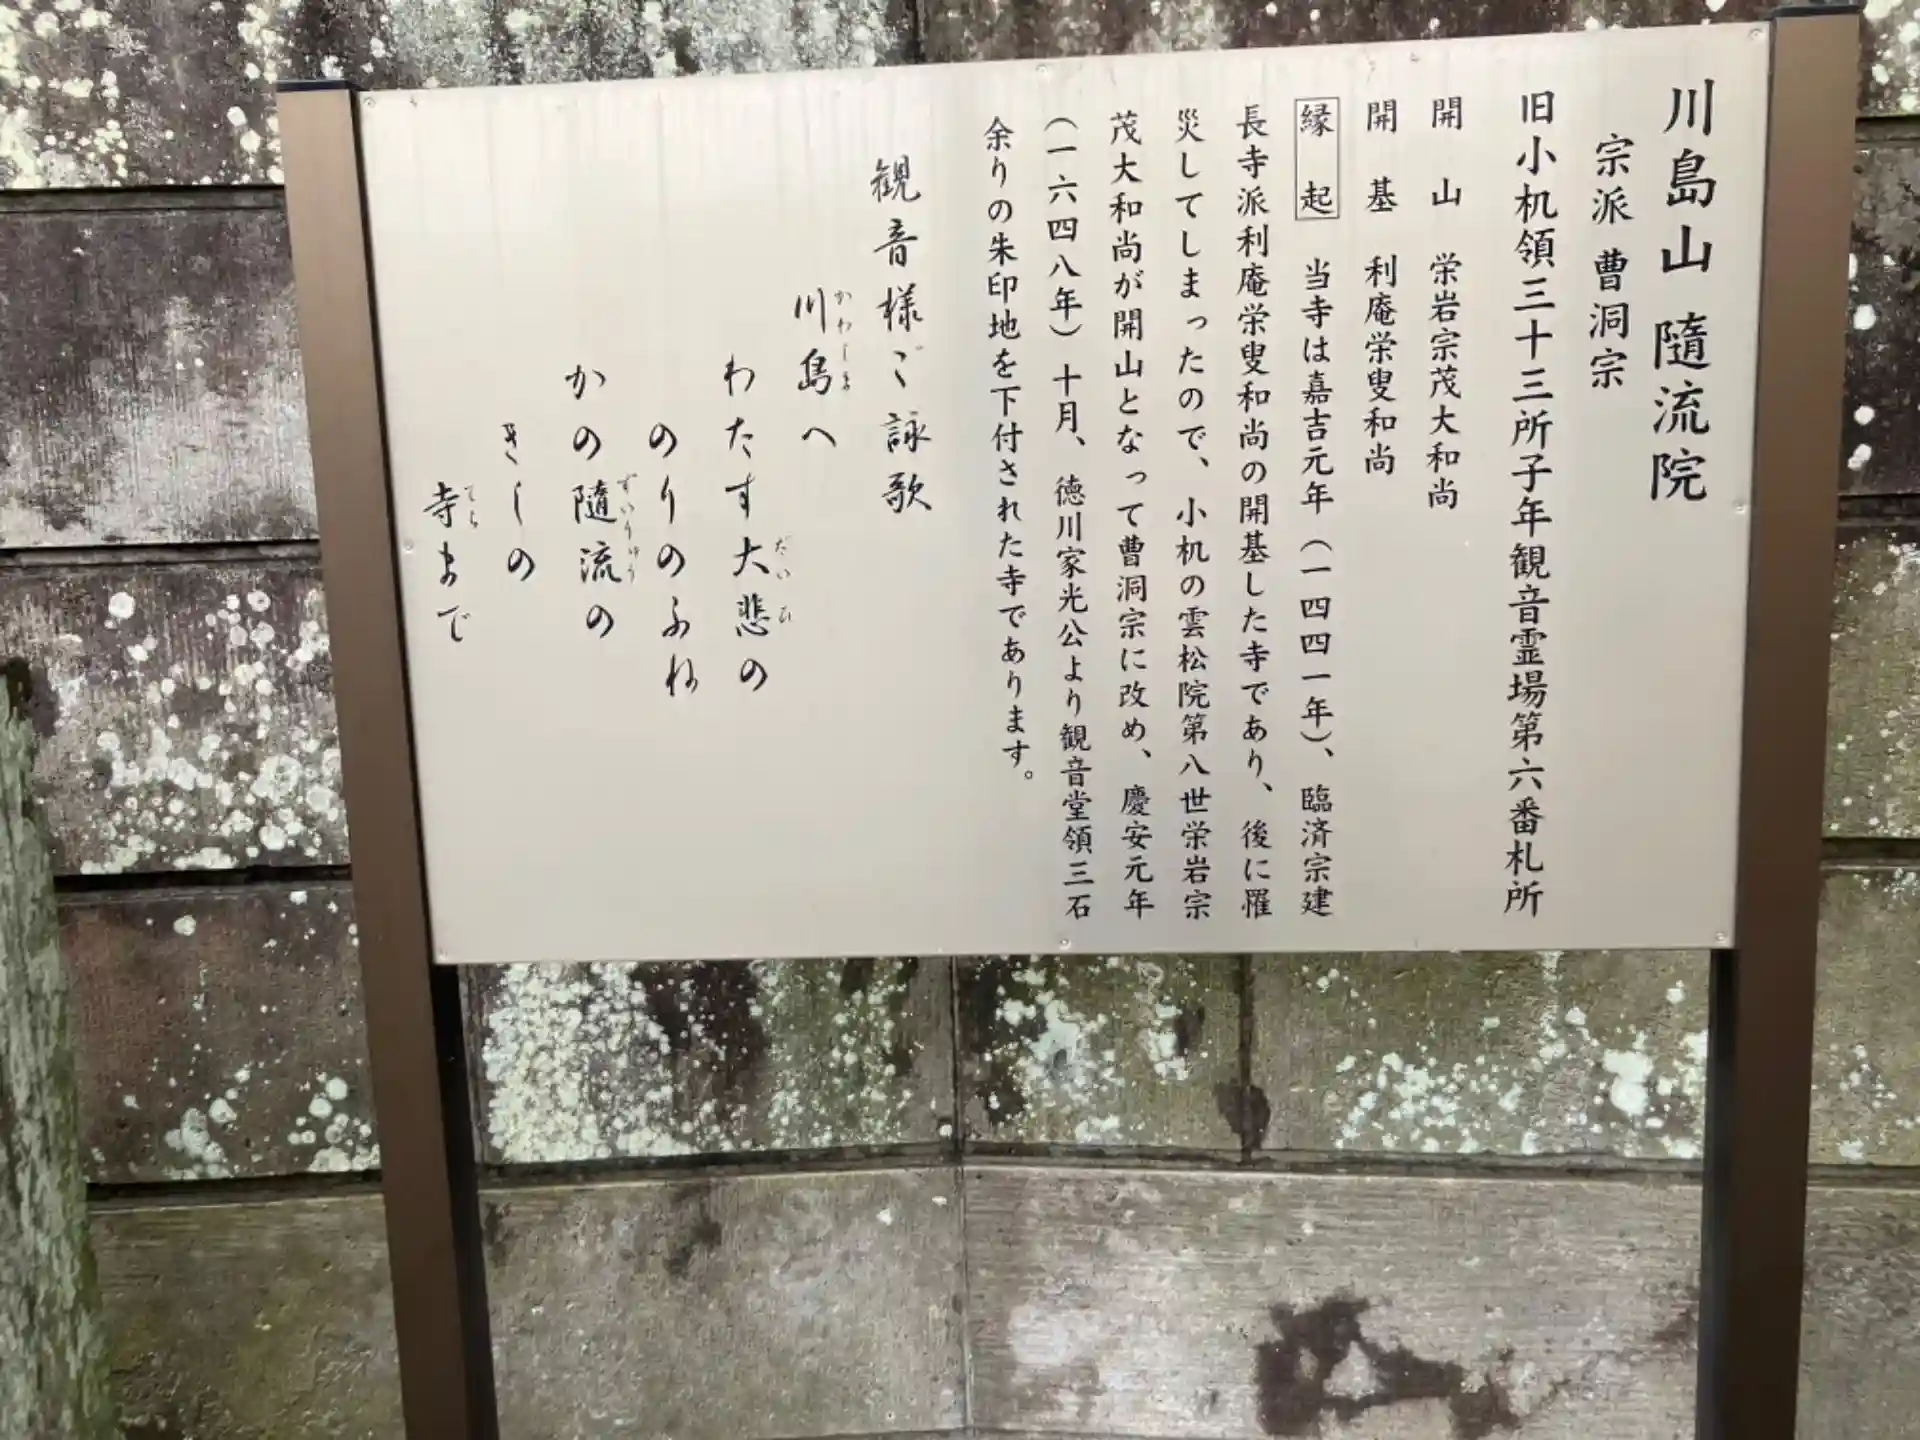 川島山 隨流院
宗派 曹洞宗
旧小机領三十三所子年観音霊場第六番札所
開山 栄岩宗茂大和尚
開基 利庵栄叟和尚
縁起 当寺は嘉吉元年（一四四一年）、臨済宗建
長寺派利庵栄叟和尚の開基した寺であり、後に罹
災してしまったので、小机の雲松院第八世栄岩宗
茂大和尚が開山となって曹洞宗に改め、慶安元年
（一六四八年）十月、徳川家光公より観音堂領三石
余りの朱印地を下付された寺であります。
観音様ご詠歌
川島へ
かわしま
わたす大悲の
だいひ
のりのふね
かの隨流の
ずいりゅう
きしの
寺まで
てら